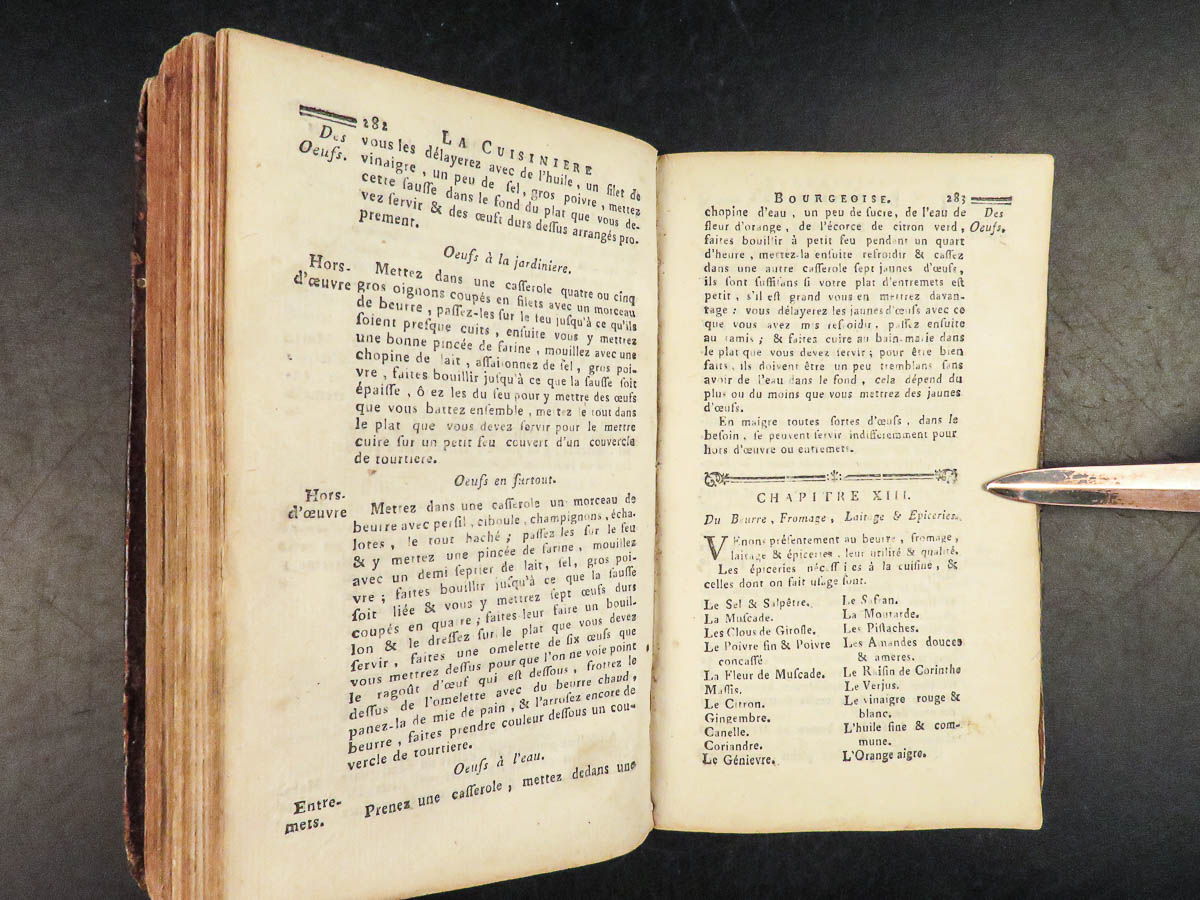 282 LA CUISINIERE
Des Oeufs.
vous les délayerez avec de l'huile, un filet de
vinaigre, un peu de sel, gros poivre, mettez
cette sausse dans le fond du plat que vous de-
vez servir & des œufs durs dessus arrangés pro-
prement.
Oeufs à la jardiniere.
Hors-d'œuvre
Mettez dans une casserole quatre ou cinq
gros oignons coupés en filets avec un morceau
de beurre, passez-les sur le feu jusqu'à ce qu'ils
soient presque cuits, ensuite vous y mettrez
une bonne pincée de farine, mouillez avec une
chopine de lait, assaisonnez de sel, gros poi-
vre, faites bouillir jusqu'à ce que la sausse soit
épaisse, ô ez les du feu pour y mettre des œufs
que vous battez ensemble, mettez le tout dans
le plat que vous devez servir pour le mettre
cuire sur un petit feu couvert d'un couvercle
de tourtiere.
Oeufs en surtout.
Hors-d'œuvre
Mettez dans une casserole un morceau de
beurre avec persil, ciboule, champignons, écha-
lotes, le tout haché; passez les sur le feu
& y mettez une pincée de farine, mouillez
avec un demi septier de lait, sel, gros poi-
vre; faites bouillir jusqu'à ce que la sausse
soit liée & vous y mettrez sept œufs durs
coupés en quatre; faites-leur faire un bouil-
lon & le dressez sur le plat que vous devez
servir, faites une omelette de six œufs que
vous mettrez dessus pour que l'on ne voie point
le ragoût d'œuf qui est dessous, frottez le
dessus de l'omelette avec du beurre chaud,
panez-la de mie de pain, & l'arrosez encore de
beurre, faites prendre couleur dessous un cou-
vercle de tourtiere.
Oeufs à l'eau.
Entre-mets.
Prenez une casserole, mettez dedans une
BOURGEOISE. 283
Des Oeufs.
chopine d'eau, un peu de sucre, de l'eau de
fleur d'orange, de l'écorce de citron verd,
faites bouillir à petit feu pendant un quart
d'heure, mettez-la ensuite refroidir & cassez
dans une autre casserole sept jaunes d'œufs,
ils sont suffisans si votre plat d'entremets est
petit, s'il est grand vous en mettrez davan-
tage: vous délayerez les jaunes d'œufs avec ce
que vous avez mis refroidir, passez ensuite
au tamis; & faites cuire au bain-marie dans
le plat que vous devez servir; pour être bien
faits, ils doivent être un peu tremblans sans
avoir de l'eau dans le fond, cela dépend du
plus ou du moins que vous mettrez des jaunes
d'œufs.
En maigre toutes sortes d'œufs, dans le
besoin, se peuvent servir indifféremment pour
hors d'œuvre ou entremets.
CHAPITRE XIII.
Du Beurre, Fromage, Laitage & Epiceries.
VEnons présentement au beurre, fromage,
laitage & épiceries, leur utilité & qualité.
Les épiceries nécessaires à la cuisine, &
celles dont on fait usage sont.
Le Sel & Salpêtre.
La Muscade.
Les Clous de Girofle.
Le Poivre fin & Poivre
concassé
La Fleur de Muscade.
Massis.
Le Citron.
Gingembre.
Canelle.
Coriandre.
Le Génievre.
Le Safran.
La Moutarde.
Les Pistaches.
Les Amandes douces
& ameres.
Le Raisin de Corinthe
Le Verjus.
Le vinaigre rouge &
blanc.
L'huile fine & com-
mune.
L'Orange aigre.